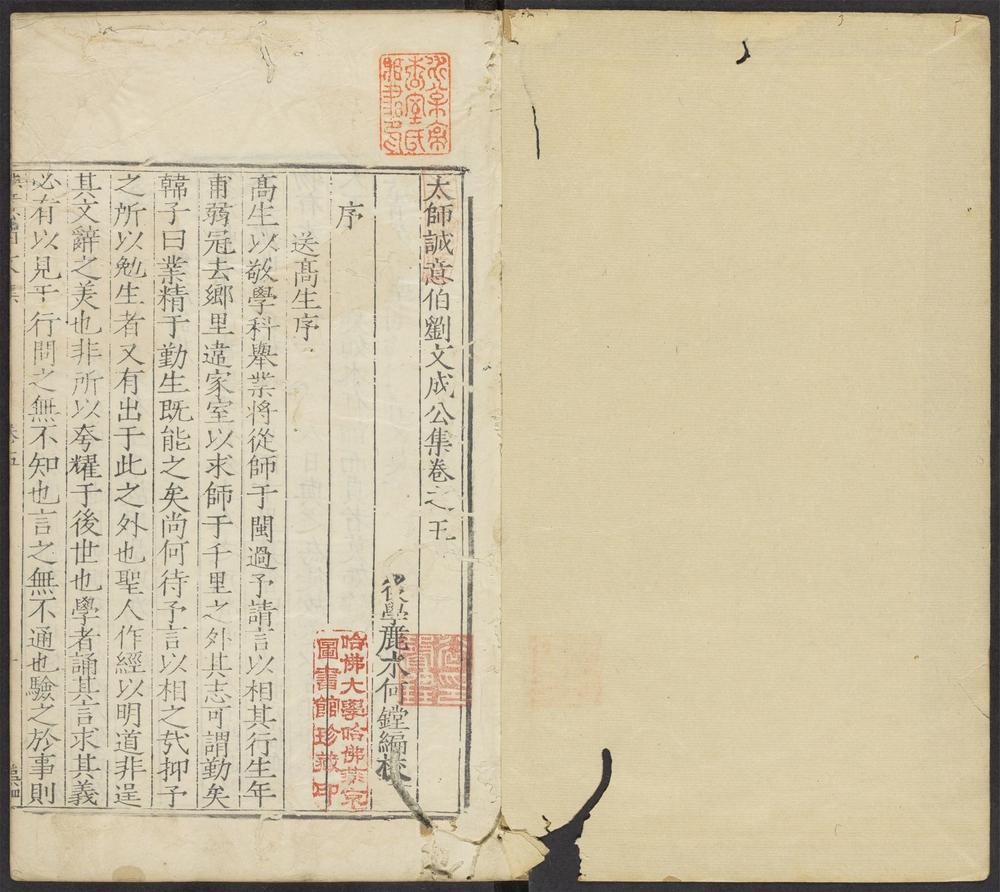 太師誠意伯劉文成公集卷之五
後學麗水何鏜編校
序
送髙生序
髙生以敬學科舉業将從師于閩過予請言以相其行生年
甫弱冠去鄉里違家室以求師于千里之外其志可謂勤矣
韓子曰業精于勤生既能之矣尚何待予言以相之㢤抑予
之所以勉生者又有出于此之外也聖人作經以明道非逞
其文辭之美也非所以夸耀于後世也學者誦其言求其義
必有以見于行問之無不知也言之無不通也驗之於事則
哈佛大學哈佛燕京
圖書館珍藏印